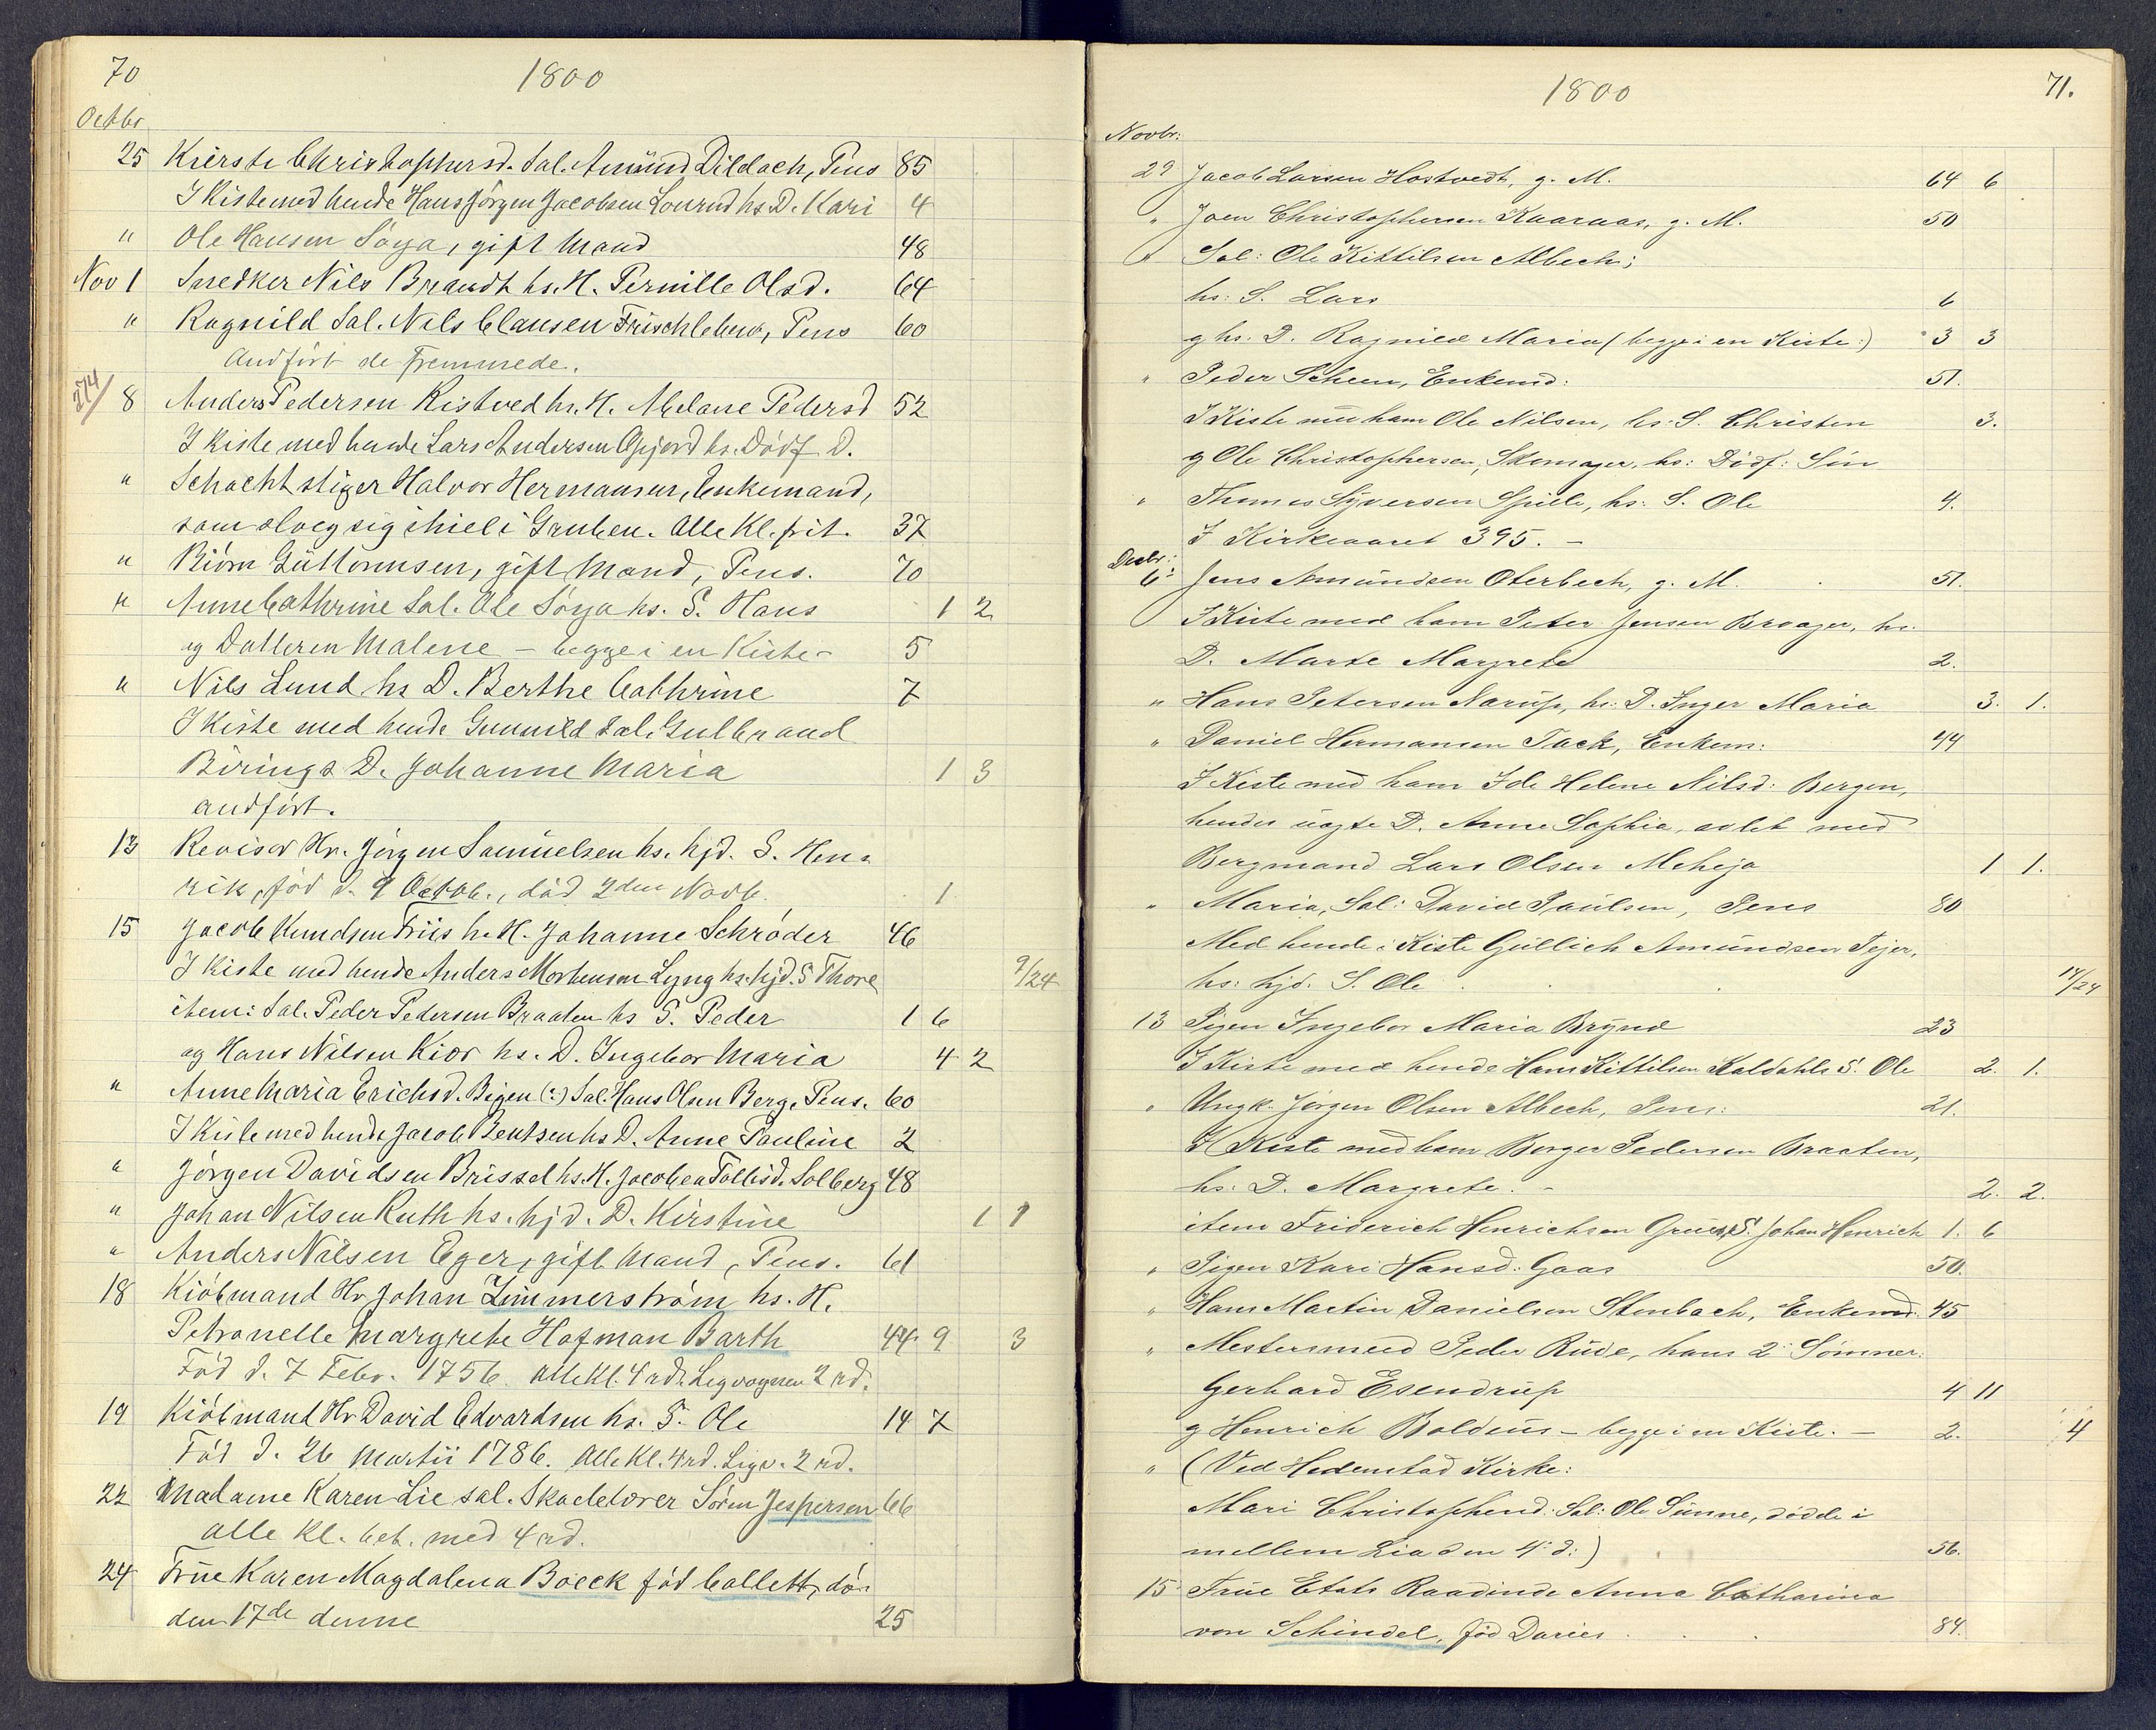 70
1800
Octbr
25 Kierste Christophersd. Sal. Amünd Dildach, Pens 85
I Kiste med hende Hans Jörgen Jacobsen Lonrud hs D. Kari 4
" Ole Hansen Söya, gift Mand 48
Nov 1 Snedker Nils Brandt hs. H. Pernille Olsd. 64
" Ragnild Sal. Nils Clausen Frischlebens, Pens 60
Andfört de Fremmede.
274/ 8 Anders Pedersen Kistved hs. H. Abelone Pedersd 52
I Kiste med hende Lars Andersen Gjord hs. Dödf. D.
" Schachtstiger Halvor Hermansen, Enkemand,
som slog sig ihiel i Gruben. Alle Kl. frit. 37
" Biörn Güttormsen, gift Mand, Pens. 70
" Anne Cathrine Sal. Ole Söya hs. S. Hans 1 2
og Datteren Malene – begge i en Kiste – 5
" Nils Lund hs D. Berthe Cathrine 7
I Kiste med hende Gunnild Sal. Gulbrand
Birings D. Johanne Maria 1 3
andfört.
13 Revisor Hr. Jörgen Samuelsen hs. hjd. S. Hen-
rik, föd d. 9 Octob., död 2den Novb. 1
15 Jacob Knudsen Friis h. H. Johanne Schröder 46
I Kiste med hende Anders Mortensen Lyng hs. hjd. S Thore 9/24
item: Sal. Peder Pedersen Braaten hs S. Peder 1 6
og Hans Nilsen Kior hs. D. Ingebor Maria 4 2
" Anne Maria Erichsd. Bigen (:) Sal. Hans Olsen Berg, Pens. 60
I Kiste med hende Jacob Bentsen hs D. Anne Pauline 2
" Jörgen Davidsen Brissel hs. H. Jacobea Tollisd. Solberg 48
" Johan Nilsen Ruth hs. hjd. D. Kirstine 1 1
" Anders Nilsen Eger, gift Mand, Pens. 61
18 Kiöbmand Hr. Johan Zimmerström hs. H.
Petronelle Margrete Hofman Barth 44 9 3
Föd d. 7 Febr. 1756. Alle Kl. 4 rd. Ligvognen 2 rd.
19 Kiöbmand Hr David Edvardsen hs. S. Ole 14 7
Föd d. 26 Martii 1786. Alle Kl. 4rd. Ligv. 2 rd.
22 Madame Karen Lie sal. Skadelover Sören Jespersen 66
alle Kl. bet. med 4 rd.
24 Früe Karen Magdalena Boeck föd Collett, dö.
den 17de denne 25
1800
71.
Novbr:
29 Jacob Larsen Hostvedt, g. M. 64 6
" Joen Christophersen Kaaraas, g. M. 50
" Sal: Ole Kittilsen Albech;
hs: S. Lars 6
g hs. D. Ragnild Maria (begge i en Kiste:) 3 3
" Peder Scheen, Enkemd: 51.
I Kiste med ham Ole Nilsen, hs: S. Christen 3.
g Ole Christophersen, Skomager, hs: Dödf: Sön
" Thomes Syversen Spiele, hs: S. Ole 4.
I Kirkeaaret 395. –
Decbr:
6: Jens Amündsen Oterbech, g. M. 51.
I Kiste med ham Peter Jensen Brager, hs.
D. Marte Margrete 2.
" Hans Petersen Narup, hs: D. Inger Maria 3. 1.
" Daniel Hermansen Tack, Enkem: 44
I Kiste med ham Ide Helene Nilsd: Bergen,
hendes üægte D. Anne Sophia, avlet med
Bergmand Lars Olsen Meheja 1 1.
" Maria, Sal: David Paülsen, Pens 80
Med hende i Kiste Güllich Amündsen Tejer,
hs: hjd. S. Ole 14/24
13 Pigen Ingebor Maria Brynd 23
I Kiste med hende Hans Kittilsen Kaldahls S. Ole 2. 1.
" Ungk. Jörgen Olsen Albech, Pens: 21.
I Kiste med ham Borger Pedersen Braaten,
hs: D. Margrete. – 2. 2.
item Friderich Henrichsen S. Johan Henrich 1. 6
" Pigen Kari Hansd: Gaas 50.
" Hans Martin Danielsen Stenbach, Enkemd. 45
" Mestersmed Peder Rüde, hans 2 Sönner:
Gerhard Esendrup 4 11
g Henrich Boldeüs – begge i en Kiste. – 2. 4
" (Ved Hedenstad Kirke:
Mari Christophersd: Sal: Ole Sünne, döde i
mellem Lia den 4: d:) 56.
15 Früe Etats Raadinde Anna Catharina
von Schindel, föd Daries 84.